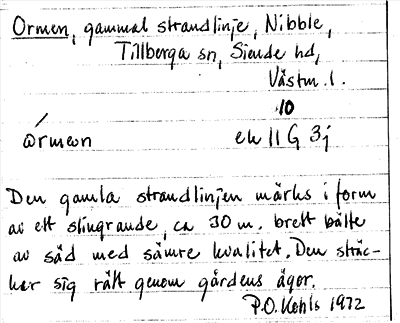 Ormen, gammal strandlinje, Nibble,
Tillberga sn, Siende hd,
Västm. l.
10
òrmen
ek 11 G 3j
Den gamla strandlinjen märks i form
av ett slingrande, ca 30 m. brett bälte
av säd med sämre kvalitet. Den sträc-
ker sig rätt genom gårdens ägor.
P.O. Kohls 1972